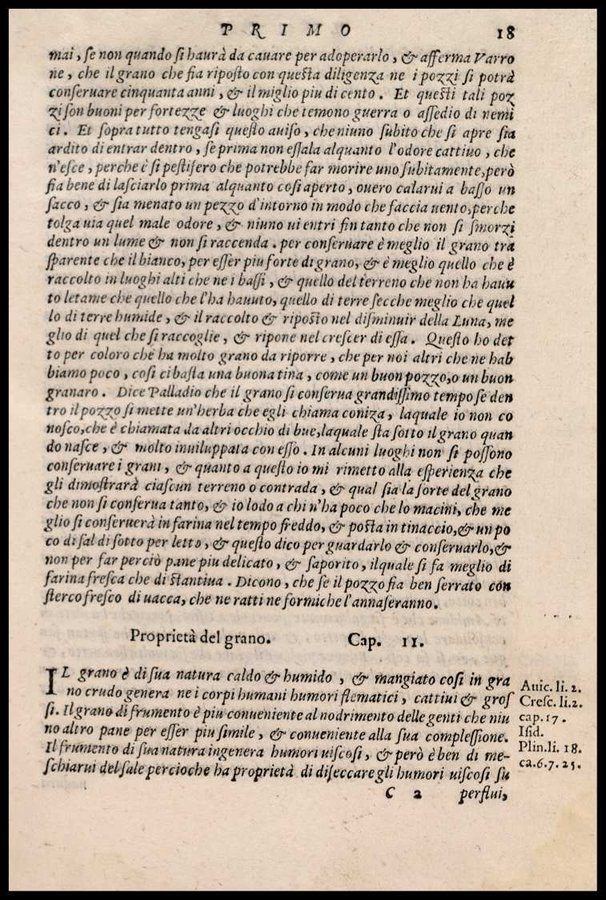 PRIMO 18
mai, se non quando si haurà da cauare per adoperarlo, & afferma Varro
ne, che il grano che sia riposto con questa diligenza ne i pozzi si potrà
conseruare cinquanta anni, & il miglio piu di cento. Et questi tali poz
zi son buoni per fortezze & luoghi che temono guerra o assedio di nemi
ci. Et sopra tutto tengasi questo auiso, che niuno subito che si apre sia
ardito di entrar dentro, se prima non essala alquanto l'odore cattiuo, che
n'esce, perche è si pestifero che potrebbe far morire uno subitamente, però
fia bene di lasciarlo prima alquanto cosi aperto, ouero calarui a basso un
sacco, & sia menato un pezzo d'intorno in modo che faccia uento, perche
tolga uia quel male odore, & niuno ui entri fin tanto che non si smorzi
dentro un lume & non si raccenda. per conseruare è meglio il grano tra
sparente che il bianco, per esser piu forte di grano, & è meglio quello che è
raccolto in luoghi alti che ne i bassi, & quello del terreno che non ha hauu
to letame che quello che l'ha hauuto, quello di terre secche meglio che quel
lo di terre humide, & il raccolto & riposto nel disminuir della Luna, me
glio di quel che si raccoglie, & ripone nel crescer di essa. Questo ho det
to per coloro che ha molto grano da riporre, che per noi altri che ne hab
biamo poco, cosi ci basta una buona tina, come un buon pozzo, o un buon
granaro. Dice Palladio che il grano si conserua grandissimo tempo se den
tro il pozzo si mette un'herba che egli chiama coniza, laquale io non co
nosco, che è chiamata da altri occhio di bue, laquale sta sotto il grano quan
do nasce, & molto inuiluppata con esso. In alcuni luoghi non si possono
conseruare i grani, & quanto a questo io mi rimetto alla esperienza che
gli dimostrarà ciascun terreno o contrada, & qual sia la sorte del grano
che non si conserua tanto, & io lodo a chi n'ha poco che lo macini, che me
glio si conseruerà in farina nel tempo freddo, & posta in tinaccio, & un po
co di sal di sotto per letto, & questo dico per guardarlo & conseruarlo, &
non per far perciò pane piu delicato, & saporito, ilquale si fa meglio di
farina fresca che di stantiua. Dicono, che se il pozzo sia ben serrato con
sterco fresco di uacca, che ne ratti ne formiche l'annaseranno.
Proprietà del grano. Cap. 11.
IL grano è di sua natura caldo & humido, & mangiato cosi in gra
no crudo genera ne i corpi humani humori flematici, cattiui & gros
si. Il grano di frumento è piu conueniente al nodrimento delle genti che niu
no altro pane per esser piu simile, & conueniente alla sua complessione.
Il frumento di sua natura ingenera humori uiscosi, & però è ben di me-
schiarui del sale percioche ha proprietà di diseccare gli humori uiscosi su
C 2 perflui,
Auic. li. 2.
Cresc. li. 2.
cap. 17.
Isid.
Plin. li. 18.
ca. 6. 7. 25.